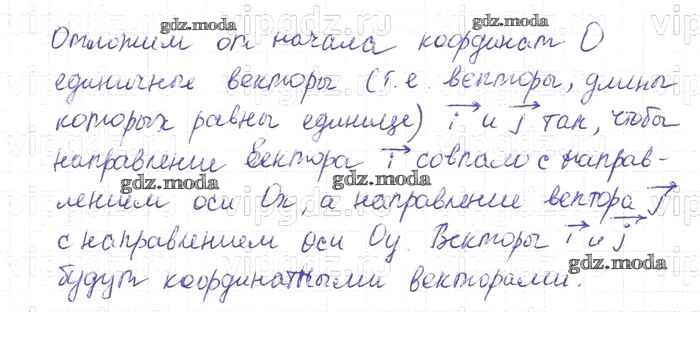 Отложим от начала координат O
единичные векторы (т.е. векторы, длины
которых равны единице) i и j так, чтобы
направление вектора i совпало с направ-
лением оси Ox, а направление вектора j
с направлением оси Oy. Векторы i и j
будут координатными векторами.
gdz.moda
gdz.moda
gdz.moda
gdz.moda
gdz.moda
gdz.moda